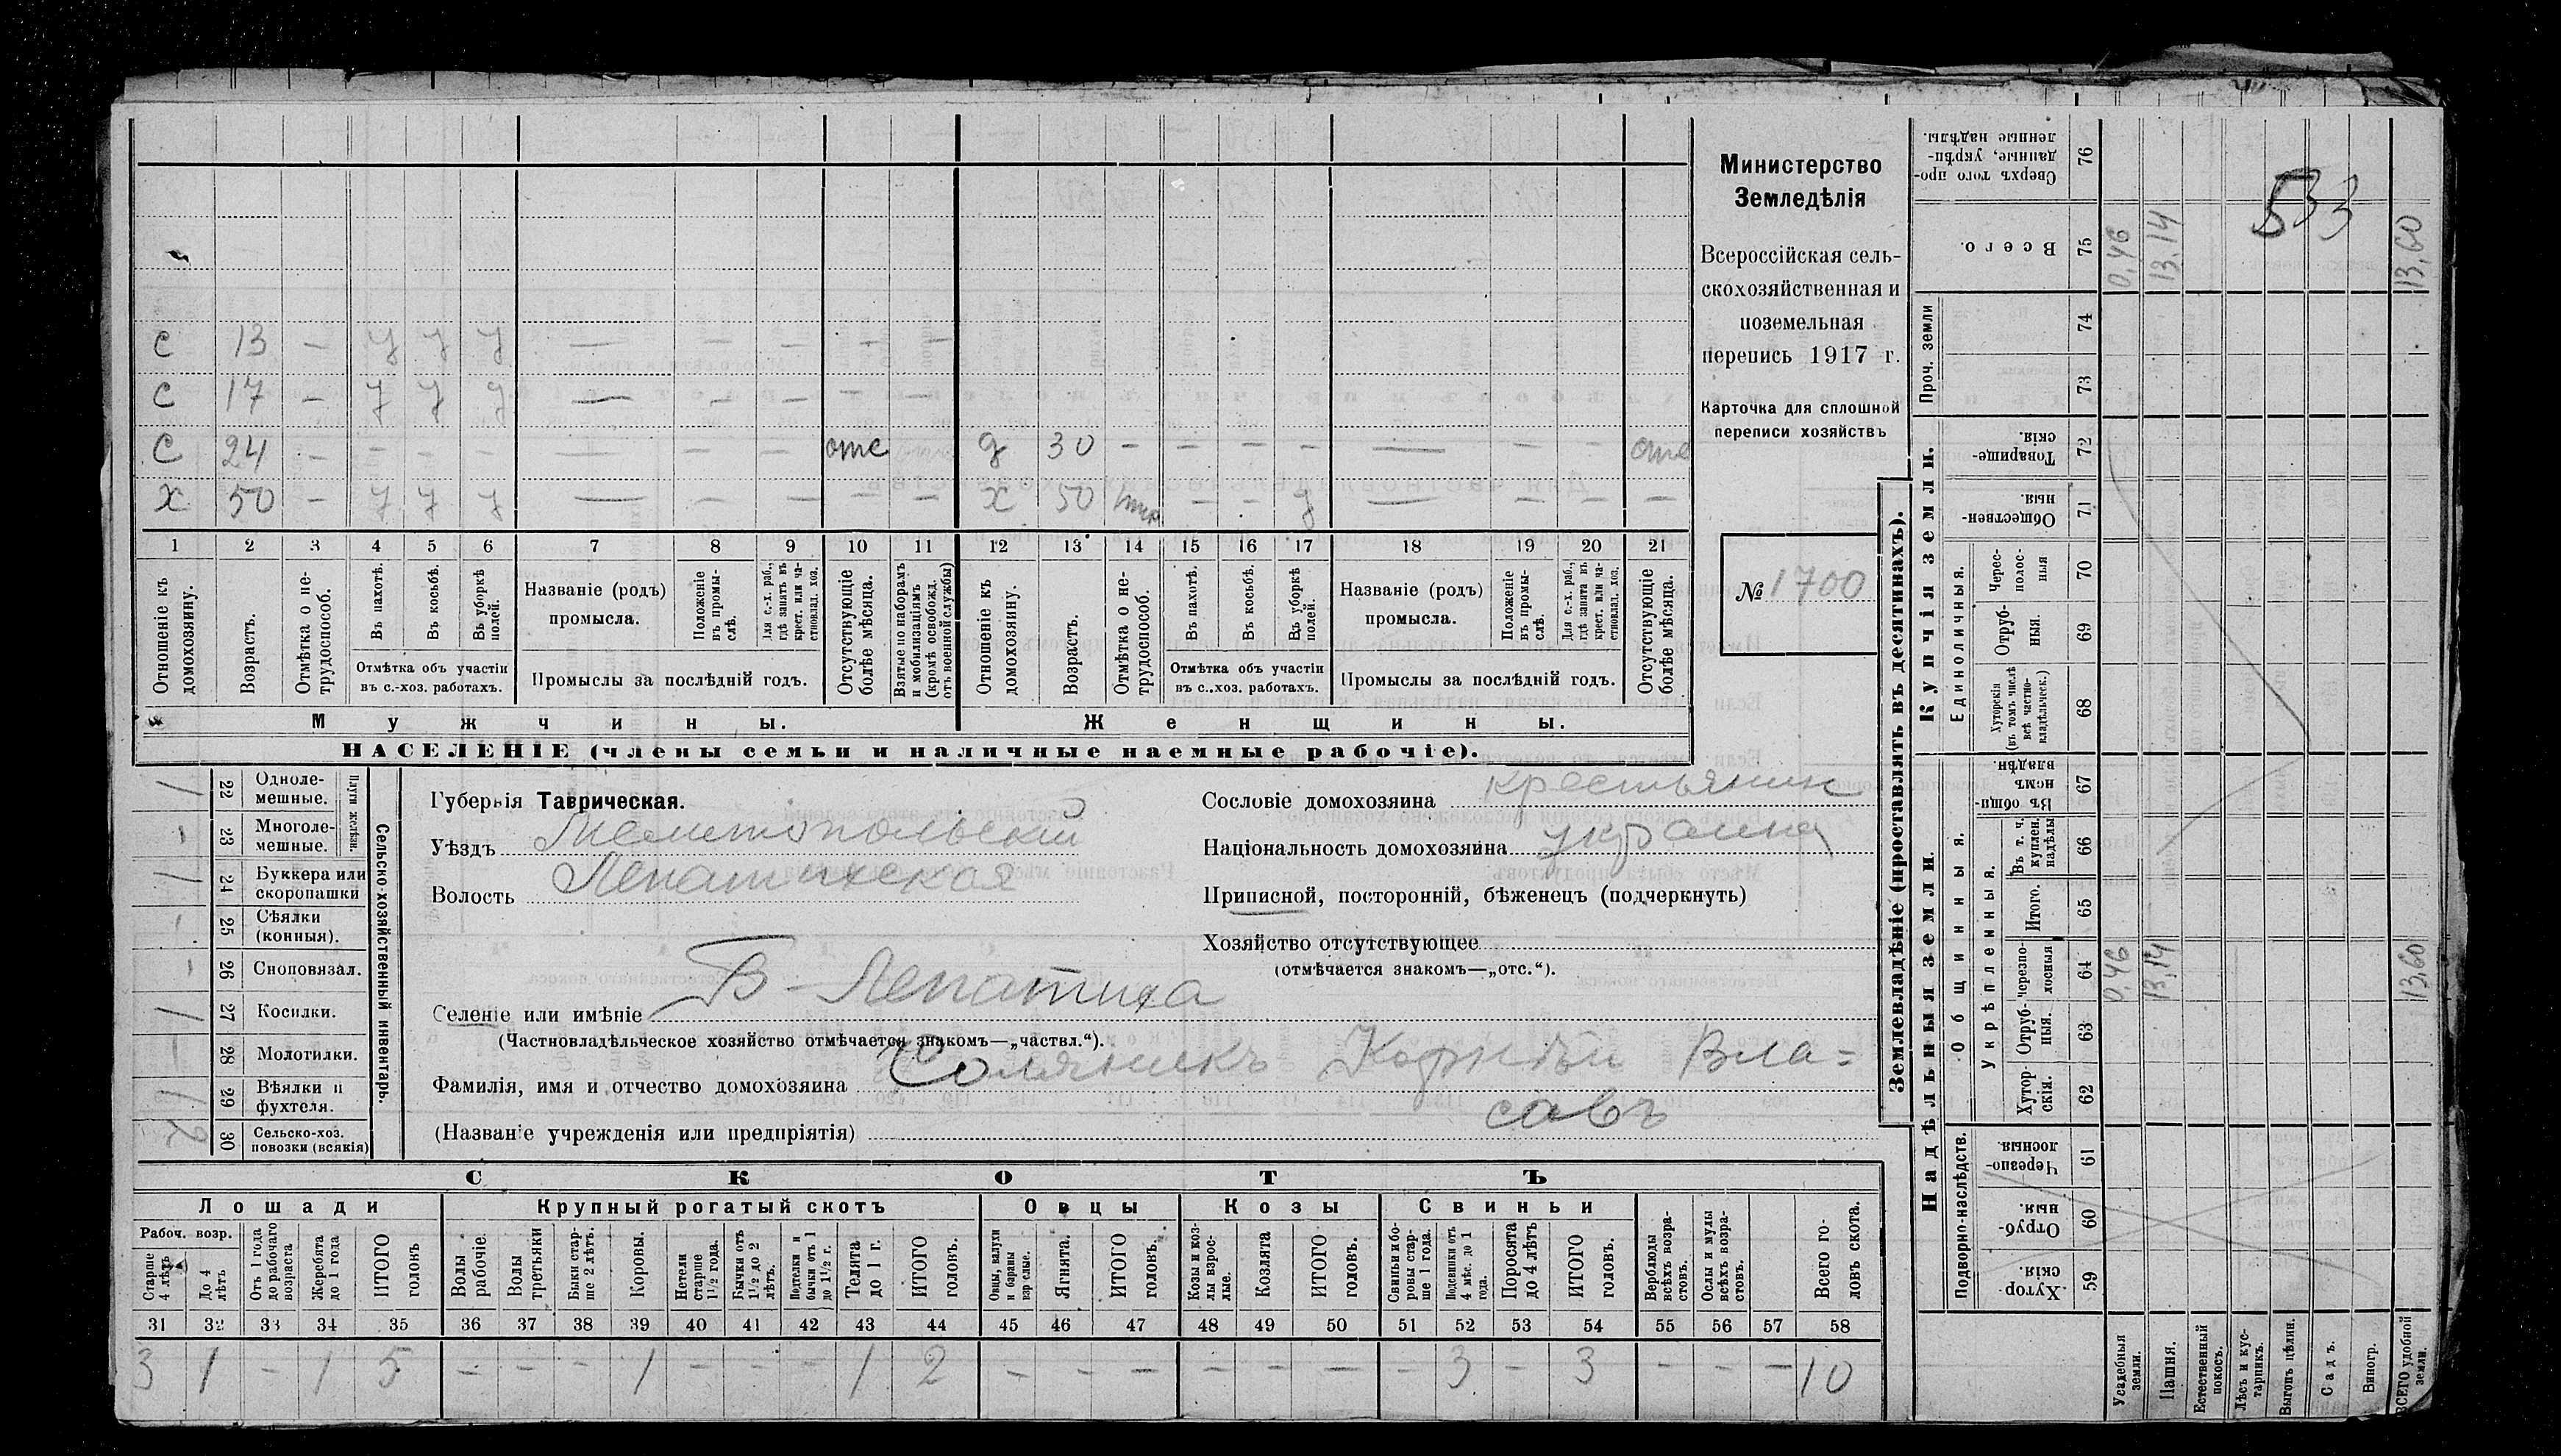 533
Министерство
Земледѣлія
Всероссійская сель-
скохозяйственная и
поземельная
перепись 1917 г.
Карточка для сплошной
переписи хозяйствъ
№ 1700
с 13 — у у у — — — — —
с 17 — у у у — — — — —
с 24 — — — — — — — отс д 30 — — — — — — — отс
х 50 — у у у — — — — — х 50 — — у — — — —
1 2 3 4 5 6 7 8 9 10 11 12 13 14 15 16 17 18 19 20 21
Отношеніе къ домохозяину.
Возрастъ.
Отмѣтка о не-трудоспособ.
Въ пахотѣ.
Въ косьбѣ.
Въ уборкѣ полей.
Отмѣтка объ участіи
въ с.-хоз. работахъ.
Названіе (родъ)
промысла.
Положеніе въ промы-слѣ.
Для с.-х. раб., гдѣ занятъ въ крест. или ча-стновлад. хоз.
Промыслы за послѣдній годъ.
Отсутствующіе болѣе мѣсяца.
Взятые по наборамъ и мобилизаціямъ (кромѣ освобожд. отъ военной службы)
Отношеніе къ домохозяину.
Возрастъ.
Отмѣтка о не-трудоспособ.
Въ пахотѣ.
Въ косьбѣ.
Въ уборкѣ полей.
Отмѣтка объ участіи
въ с..хоз. работахъ.
Названіе (родъ)
промысла.
Положеніе въ промы-слѣ.
Для с.-х. раб., гдѣ занята въ крест. или ча-стновлад. хоз.
Промыслы за послѣдній годъ.
Отсутствующіе болѣе мѣсяца.
Мужчины.
Женщины.
НАСЕЛЕНІЕ (члены семьи и наличные наемные рабочіе).
Сельско-хозяйственный инвентарь.
Плуги желѣзн.
22 Одноле-мешные. 1
23 Многоле-мешные. 1
24 Буккера или скоропашки 1
25 Сѣялки (конныя). 1
26 Сноповязал. 1
27 Косилки. 1
28 Молотилки. 1
29 Вѣялки и фухтеля. 1
30 Сельско-хоз. повозки (всякія) 2
Губернія Таврическая.
Уѣздъ Мелитопольскій
Волость Лепатихская
Селеніе или имѣніе Б-Лепатиха
(Частновладѣльческое хозяйство отмѣчается знакомъ—„частвл.“).
Фамилія, имя и отчество домохозяина Соляникъ Корнѣй Вла=
совъ
(Названіе учрежденія или предпріятія)
Сословіе домохозяина крестьянин
Національность домохозяина украинец
Приписной, посторонній, бѣженецъ (подчеркнуть)
Хозяйство отсутствующее
(отмѣчается знакомъ—„отс.“).
СКОТЪ
Лошади
Крупный рогатый скотъ
Овцы
Козы
Свиньи
Рабоч. возр.
Старше 4 лѣтъ
До 4 лѣтъ
Отъ 1 года до рабочаго возраста
Жеребята до 1 года
ИТОГО головъ
Волы рабочіе.
Волы третьяки
Быки стар-ше 2 лѣтъ.
Коровы.
Нетели старше 1½ года.
Бычки отъ 1½ до 2 лѣтъ.
Подтелки и бычки отъ 1 до 1½ г.
Телята до 1 г.
ИТОГО головъ.
Овцы, валухи и бараны взрослые.
Ягнята.
ИТОГО головъ.
Козы и коз-лы взрос-лые.
Козлята
ИТОГО головъ.
Свиньи и бо-ровы стар-ше 1 года.
Подсвинки отъ 4 мѣс. до 1 года.
Поросята до 4 лѣтъ
ИТОГО головъ.
Верблюды всѣхъ возра-стовъ.
Ослы и мулы всѣхъ возра-стовъ.
Всего го-ловъ скота.
31 32 33 34 35 36 37 38 39 40 41 42 43 44 45 46 47 48 49 50 51 52 53 54 55 56 57 58
3 1 — 1 5 — — — 1 — — — 1 2 — — — — — — — 3 — 3 — — — 10
Землевладѣніе (проставлять въ десятинахъ).
Надѣльныя земли.
Купчія земли.
Проч. земли
Подворно-наслѣдств.
Общинныя.
Укрѣпленныя.
Единоличныя.
59 Хутор-скія.
60 Отруб-ныя.
61 Черезпо-лосныя.
62 Хутор-скія.
63 Отруб-ныя.
64 Черезпо-лосныя 0,46 13,14 13,60
65 Итого.
66 Въ т. ч. куплен. надѣлы
67 Въ общи-номъ владѣн.
68 Хуторскія (въ томъ числѣ всѣ частно-владѣльческ.)
69 Отруб-ныя.
70 Черес-полос-ныя
71 Обществен-ныя.
72 Товарище-скія.
73
74
75 Всего. 0,46 13,14 13,60
76 Сверхъ того про-данные, укрѣп-ленные надѣлы.
Усадебныя земли.
Пашня.
Естественный покосъ.
Лѣсъ и кус-тарникъ.
Выгонъ цѣлин.
Садъ.
Виногр.
ВСЕГО удобной земли.